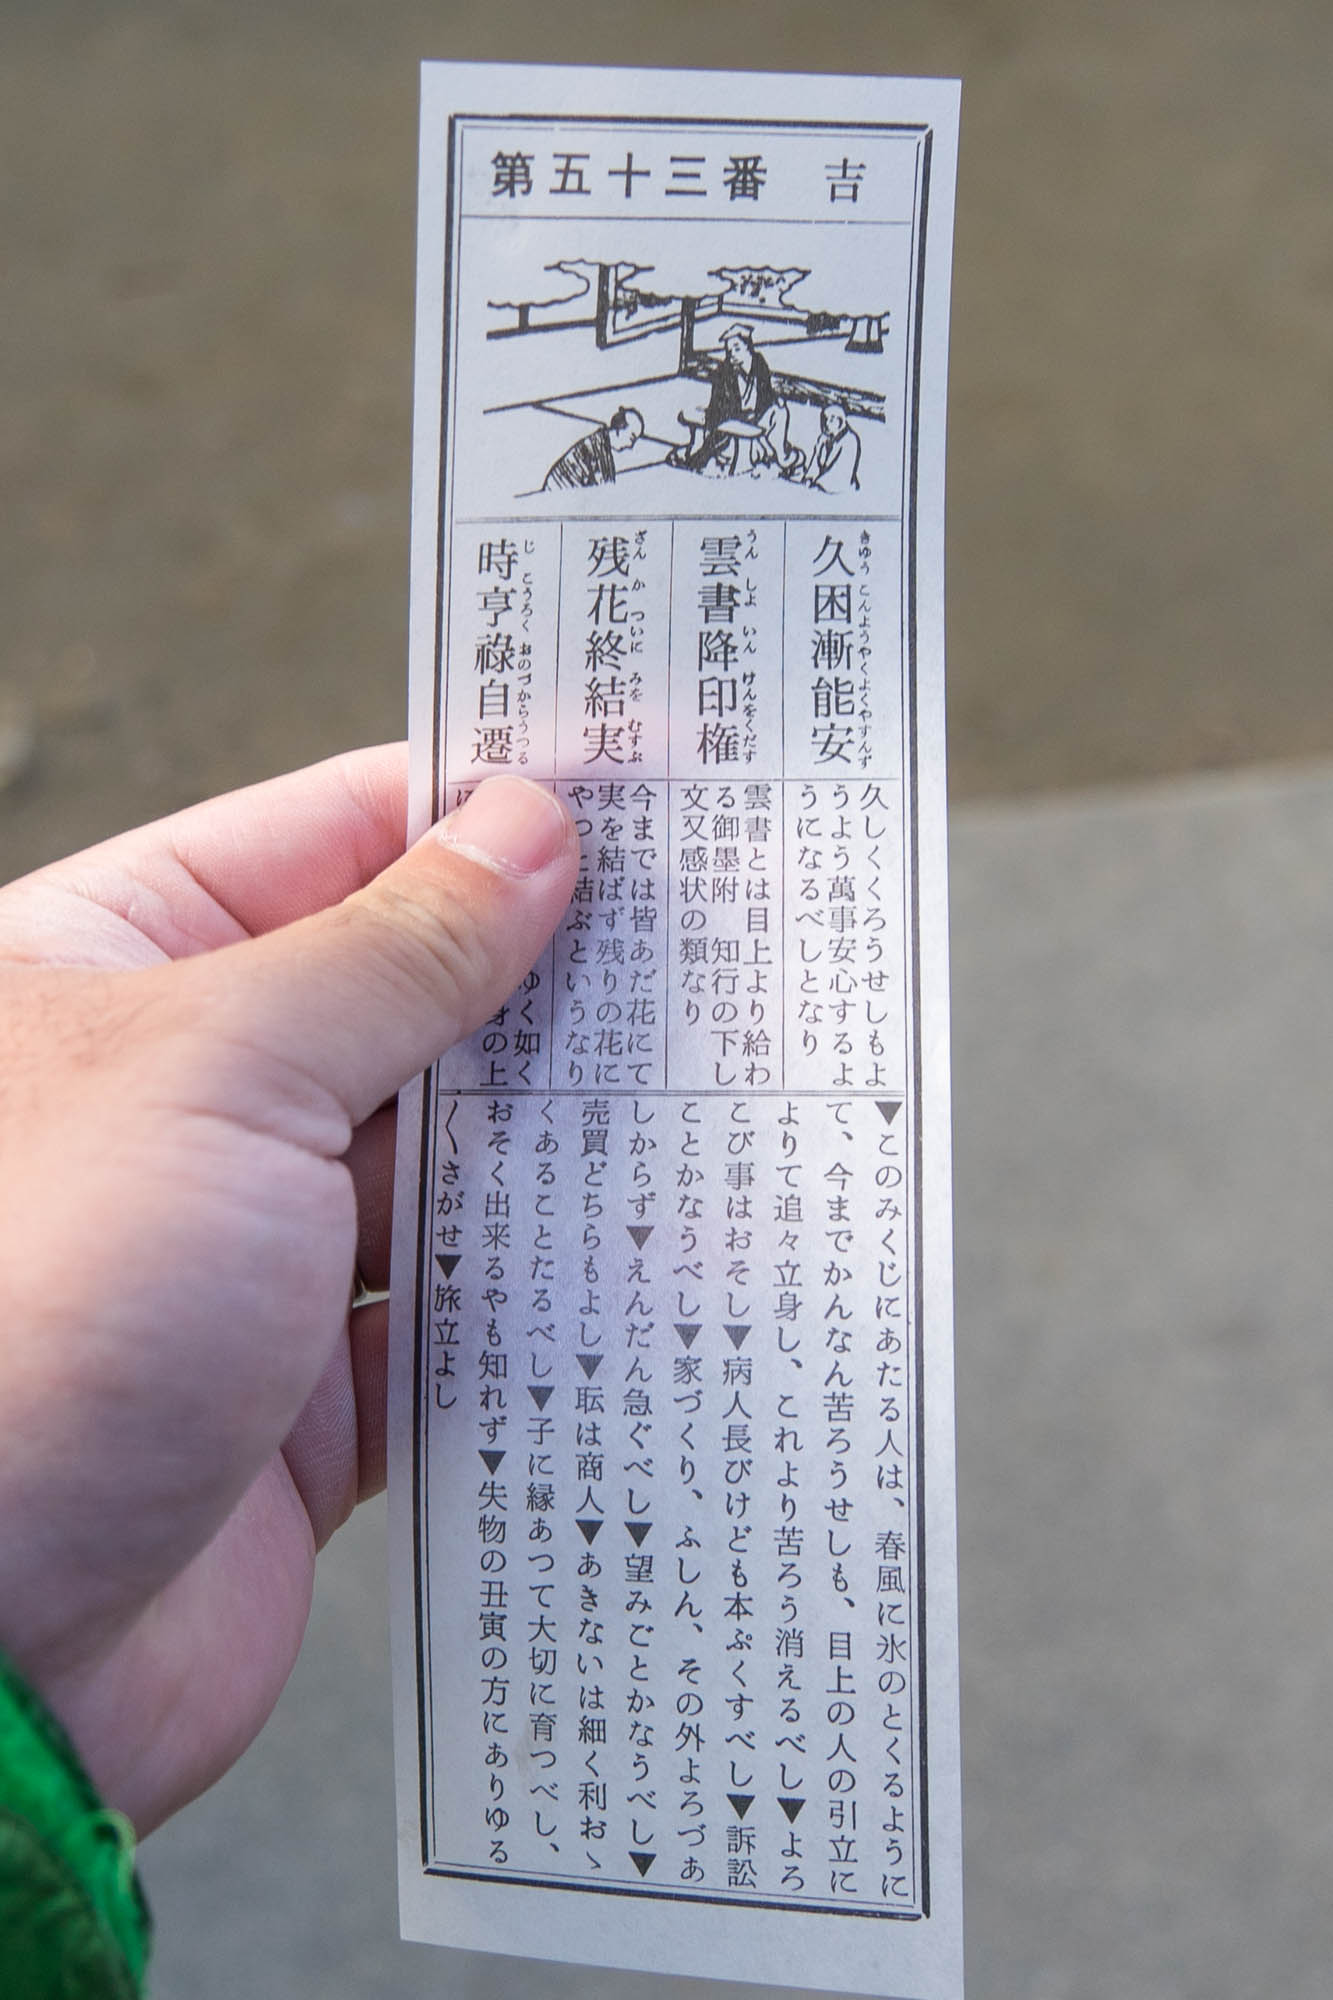 第五十三番 吉
久困漸能安
きゆうこんようやくよくやすんず
久しくくろうせしもよ
うよう萬事安心するよ
うになるべしとなり
雲書降印権
うんしよいんけんをくだす
雲書とは目上より給わ
る御墨附 知行の下し
文又感状の類なり
残花終結実
ざんかついにみをむすぶ
今までは皆あだ花にて
実を結ばず残りの花に
やつと結ぶというなり
時亨祿自遷
じこうろくおのづからうつる
ゆく如く
身の上
▼このみくじにあたる人は、春風に氷のとくるように
て、今までかんなん苦ろうせしも、目上の人の引立に
よりて追々立身し、これより苦ろう消えるべし▼よろ
こび事はおそし▼病人長びけども本ぷくすべし▼訴訟
ことかなうべし▼家づくり、ふしん、その外よろづあ
しからず▼えんだん急ぐべし▼望みごとかなうべし▼
売買どちらもよし▼耺は商人▼あきないは細く利おゝ
くあることたるべし▼子に縁あつて大切に育つべし、
おそく出来るやも知れず▼失物の丑寅の方にありゆる
〱さがせ▼旅立よし